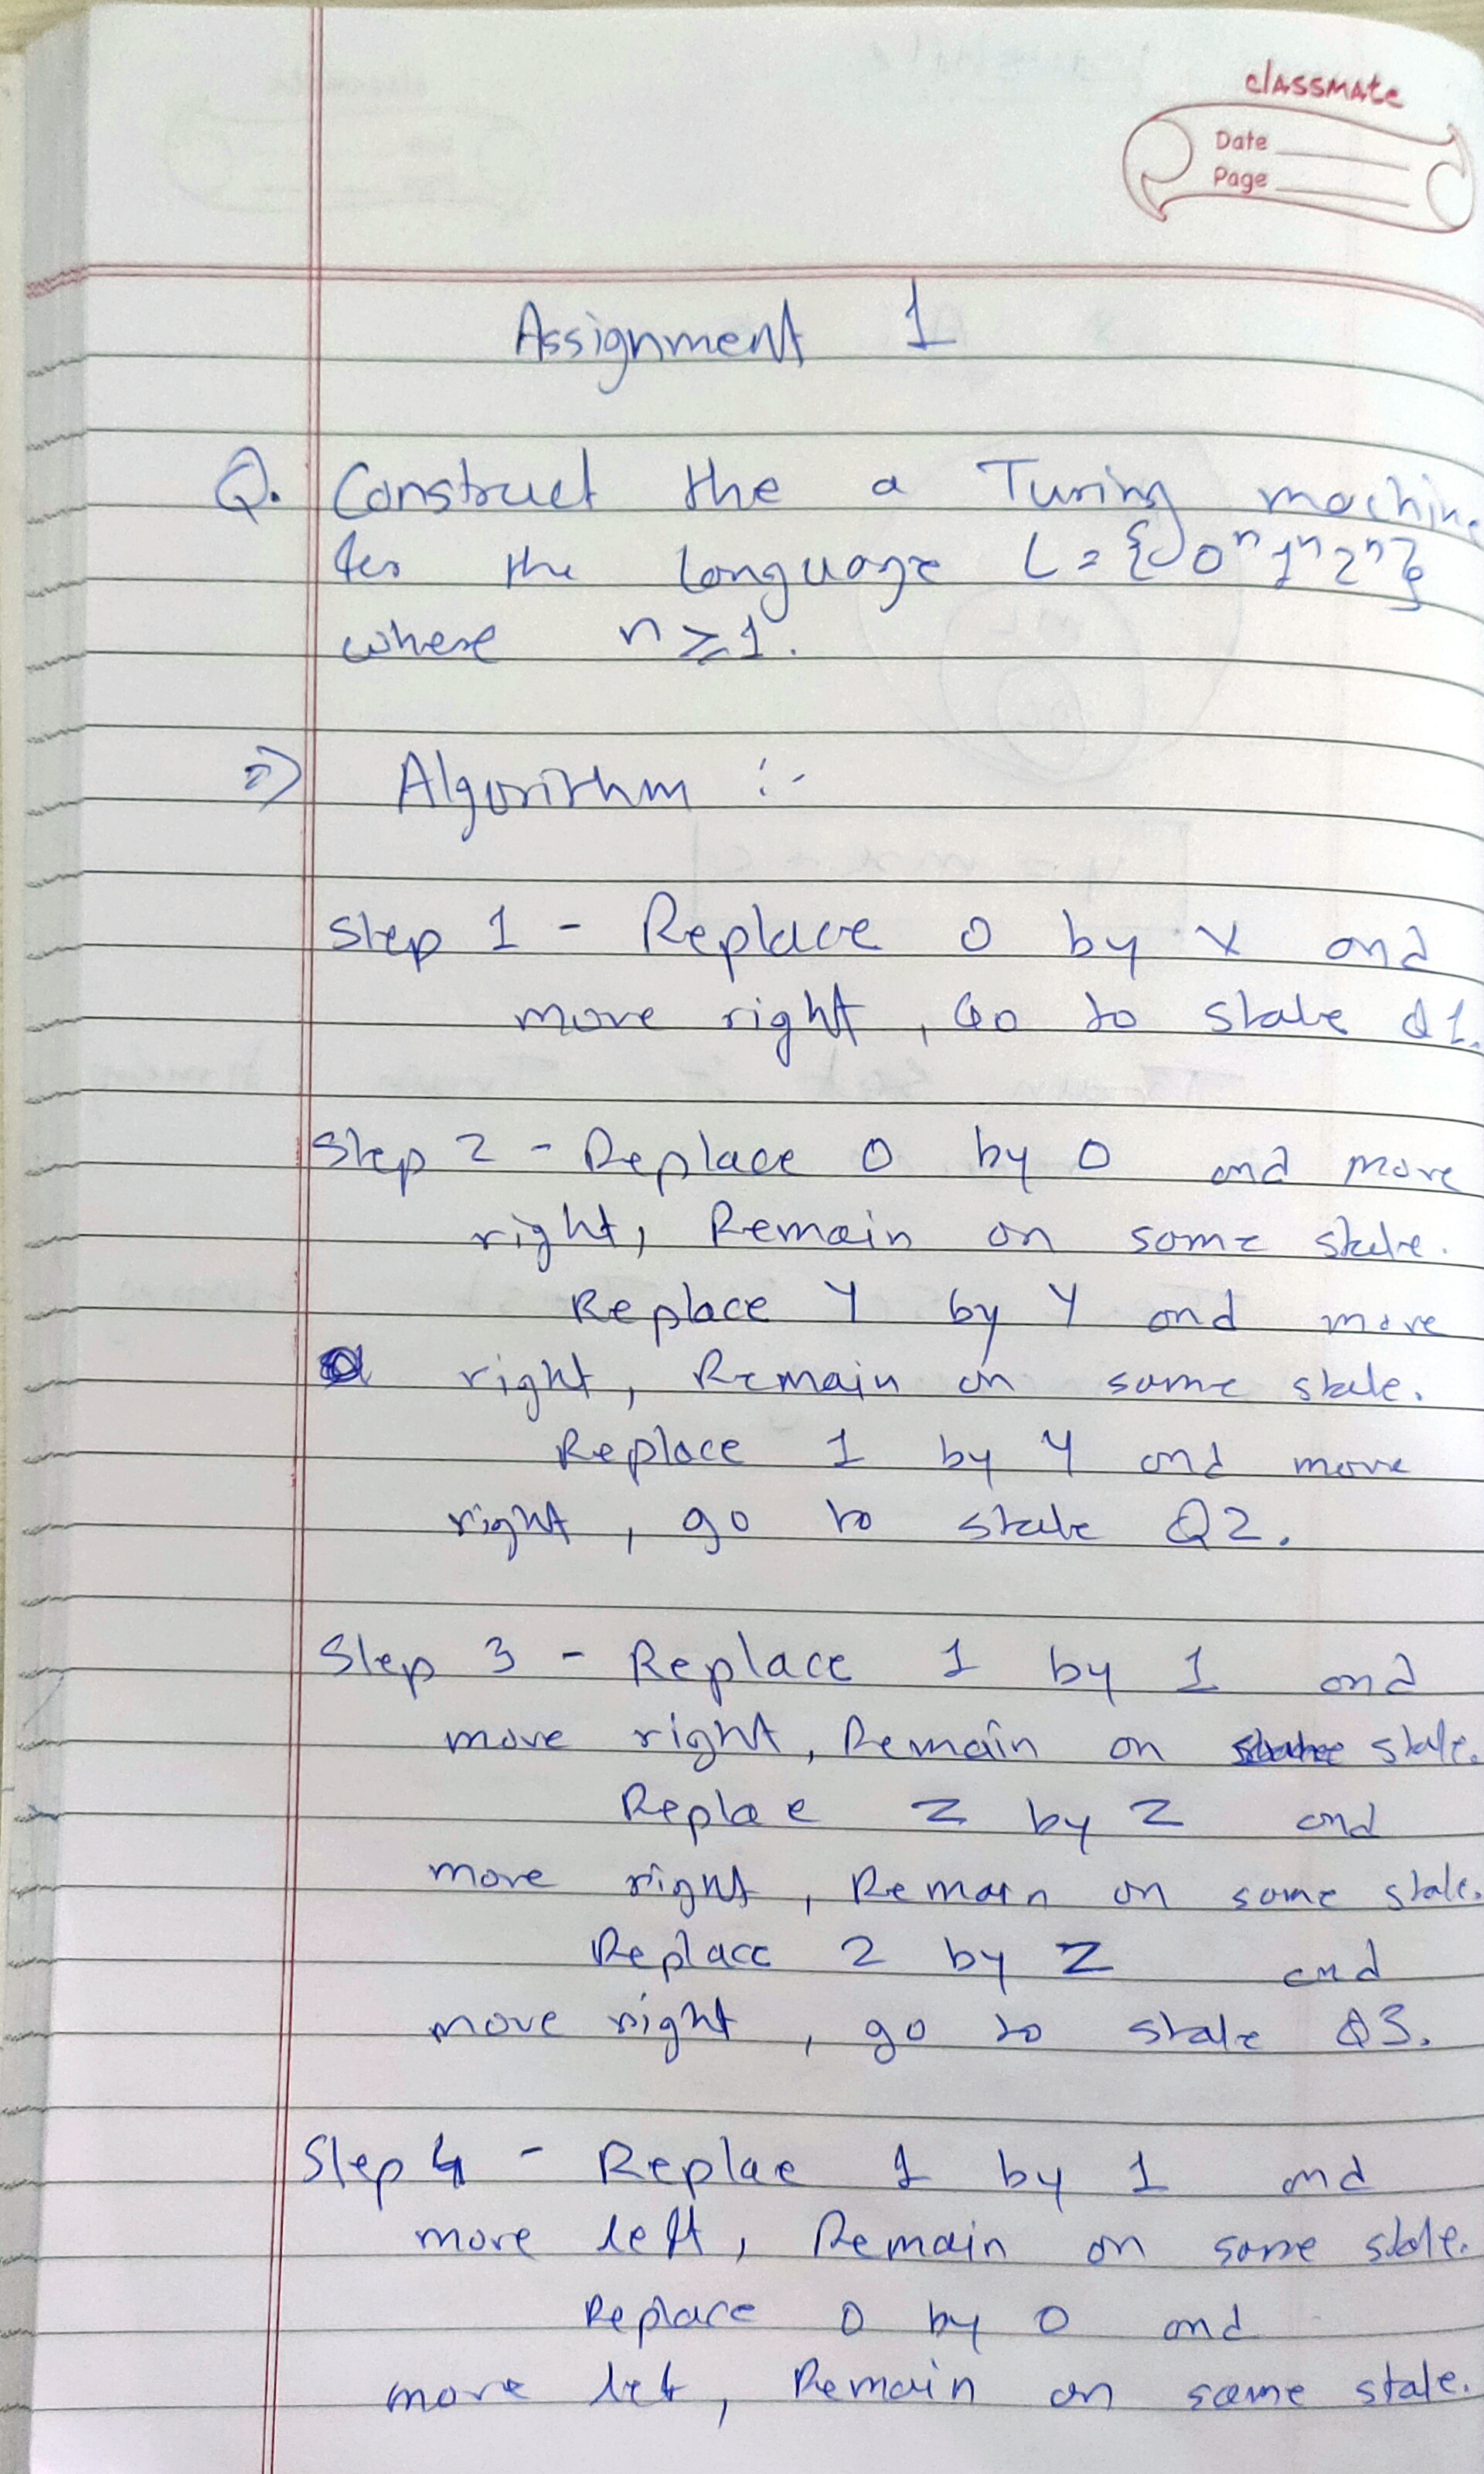 classmate
Date
Page
Assignment 1
Q. Construct the a Turing machine
for the language L = {0ⁿ1ⁿ2ⁿ}
where n ≥ 1.
⇒ Algorithm :-
Step 1 - Replace 0 by X and
move right, Go to state Q1.
Step 2 - Replace 0 by 0 and move
right, Remain on same state.
Replace Y by Y and move
right, Remain on same state.
Replace 1 by Y and move
right, go to state Q2.
Step 3 - Replace 1 by 1 and
move right, Remain on state.
Replae Z by Z and
move right, Remain on same state.
Replace 2 by Z and
move right, go to state Q3.
Step 4 - Replae 1 by 1 and
move left, Remain on same state.
Replace 0 by 0 and
move left, Remain on same state.